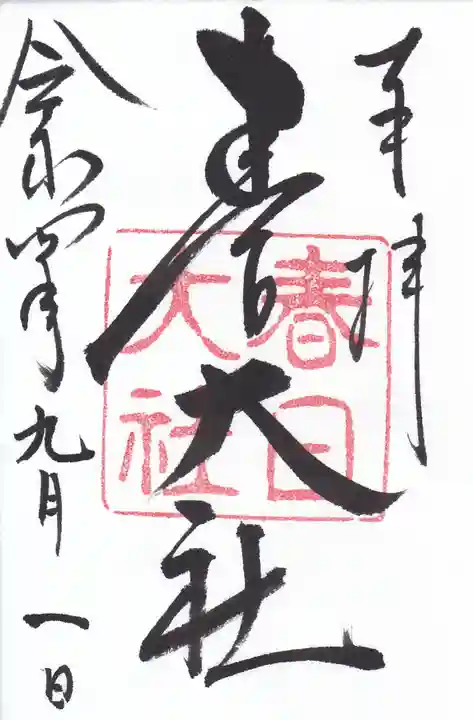 奉拝
春日大社
春日大社
令和四年九月一日